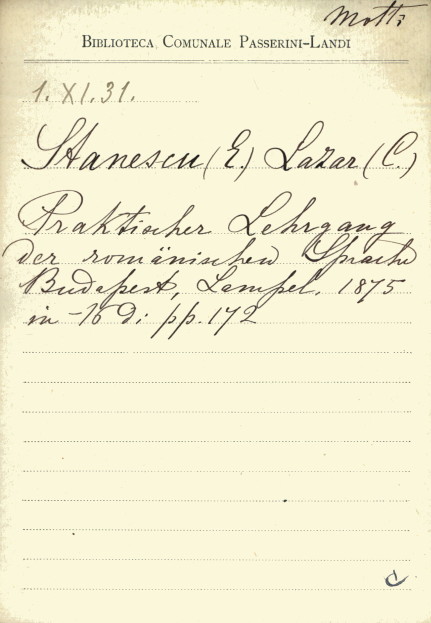 Motti
BIBLIOTECA COMUNALE PASSERINI-LANDI
1. XI. 31.
Stanescu (E.) Lazar (C.)
Praktischer Lehrgang
der romänischen Sprache
Budapest, Lampel. 1875
in-16 di pp. 172